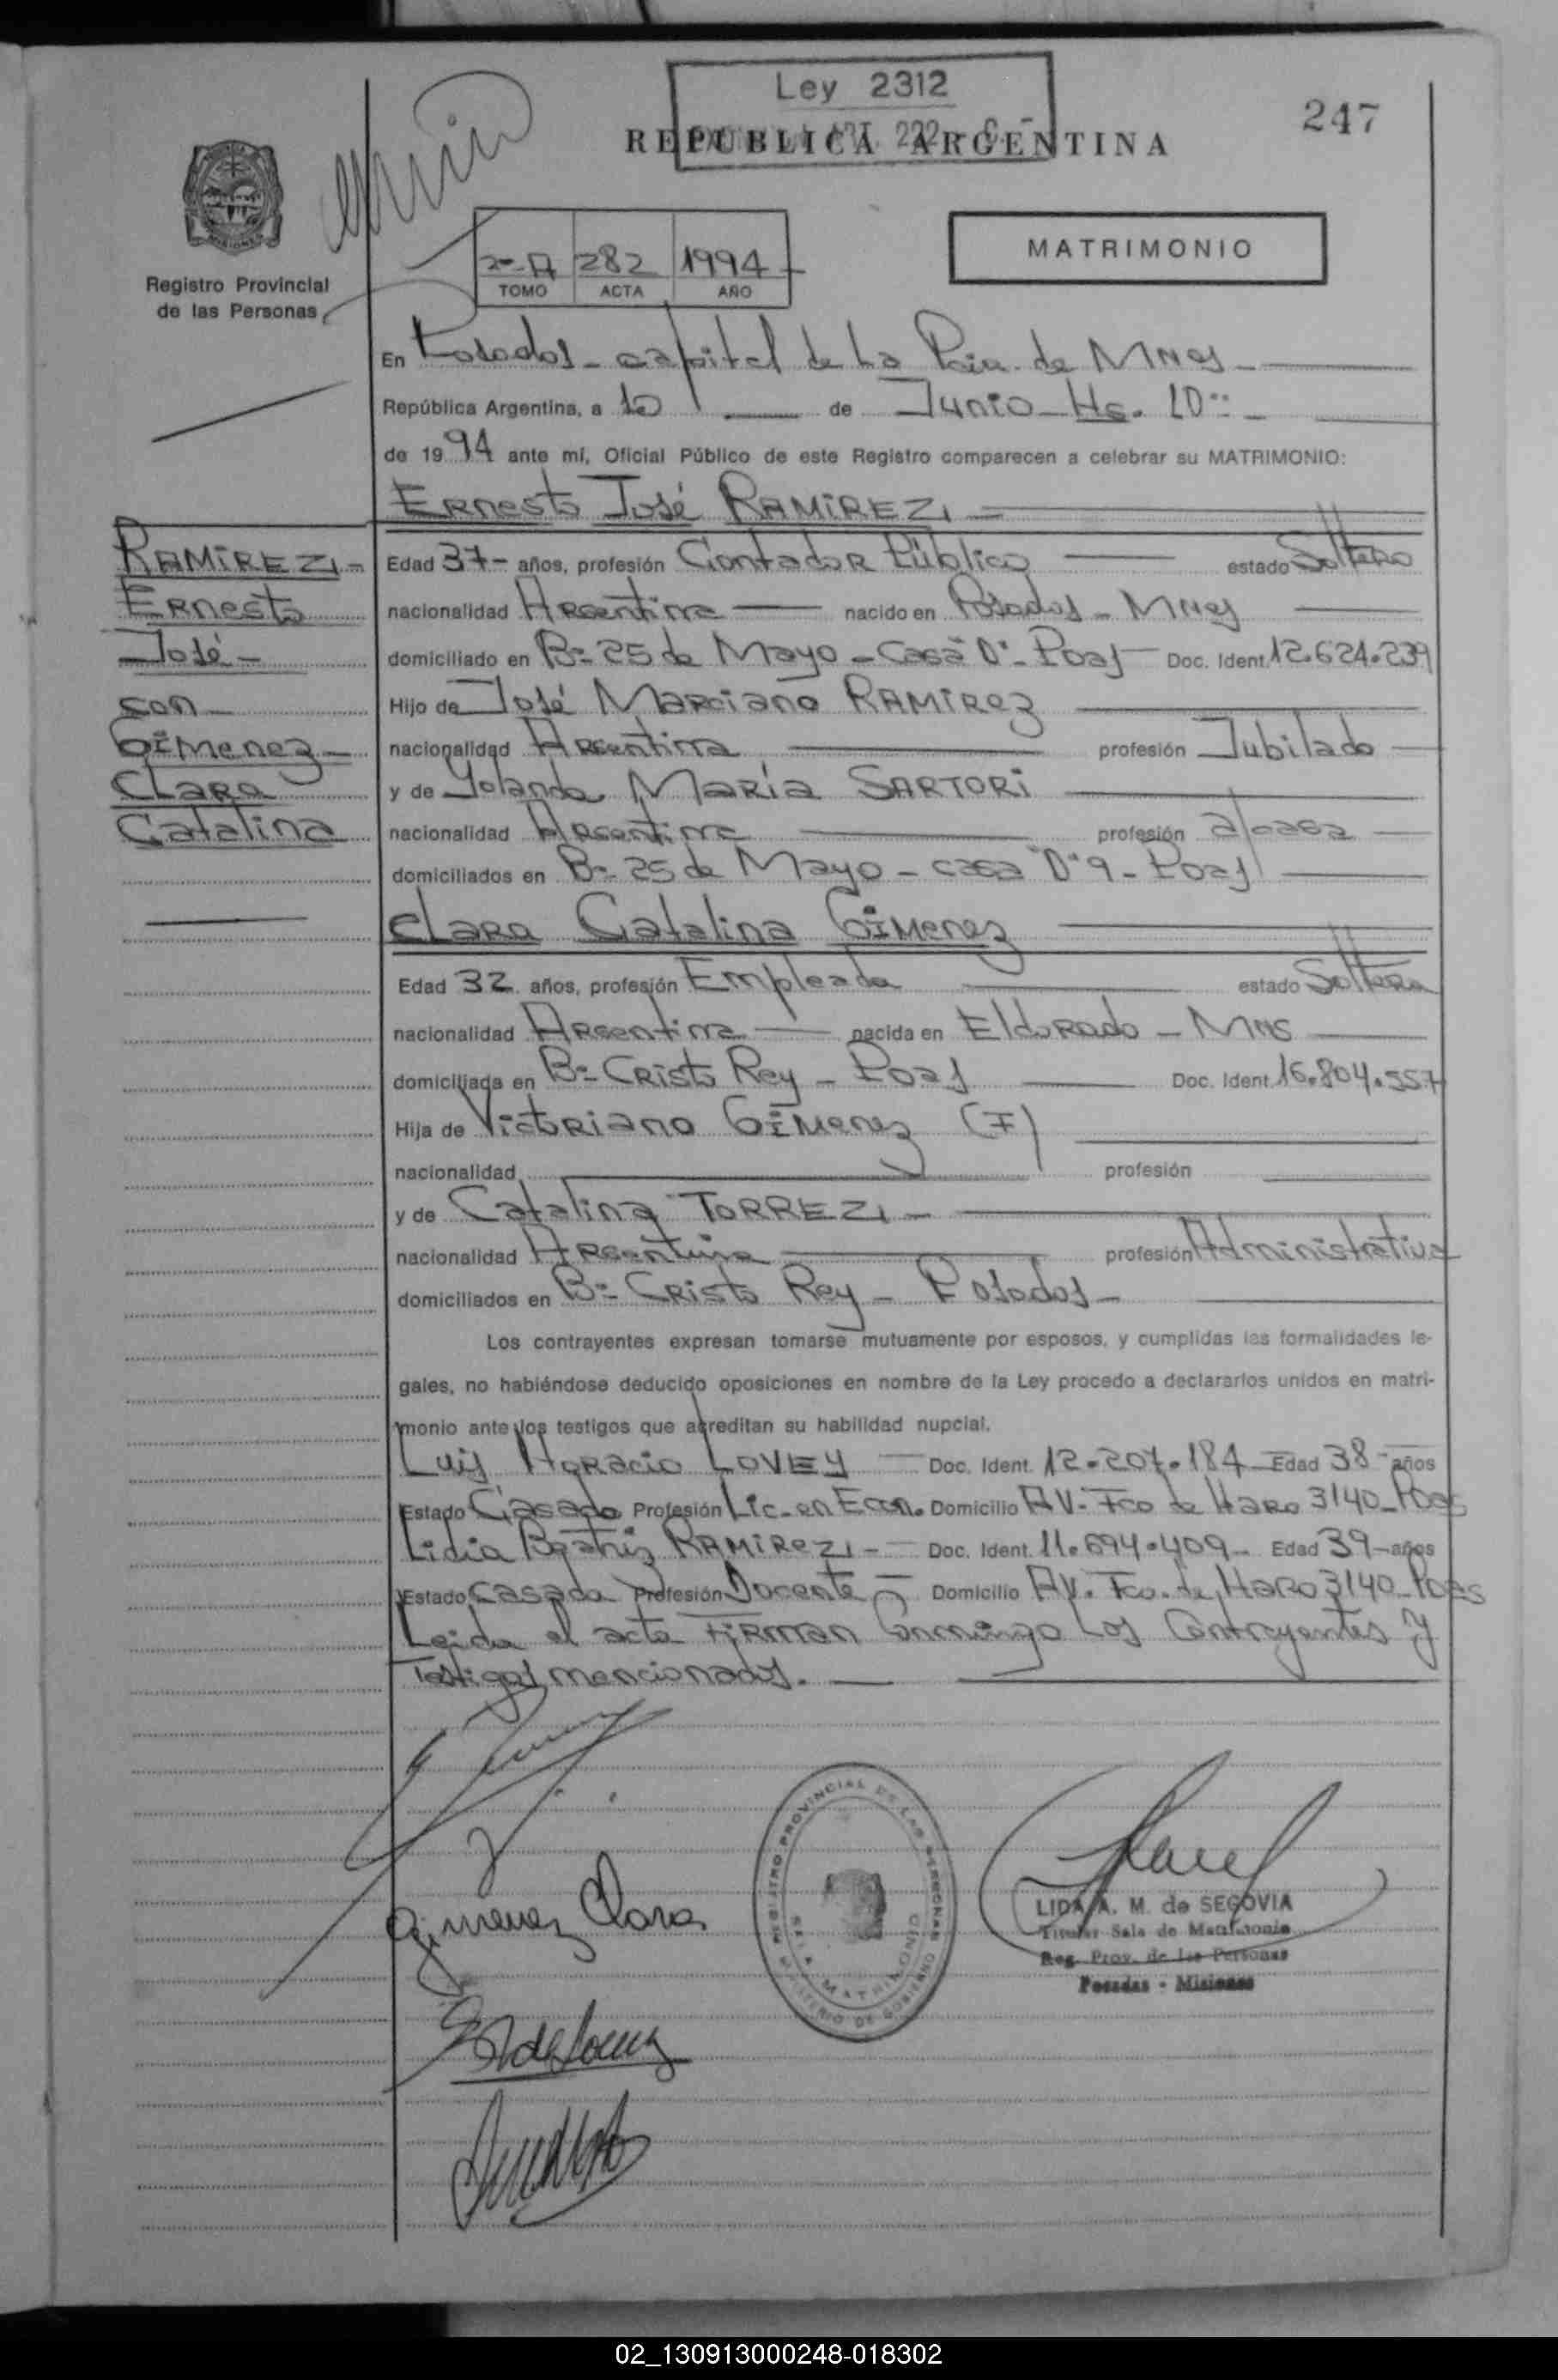 Ley 2312
247
REPUBLICA ARGENTINA
Registro Provincial
de las Personas
2º-A 282 1994
TOMO ACTA AÑO
MATRIMONIO
En Posadas - capital de La Pcia. de Mnes
República Argentina, a 10 de Junio - Hs. 10
de 1994 ante mí, Oficial Público de este Registro comparecen a celebrar su MATRIMONIO:
Ernesto José RAMIREZ
RAMIREZ -
Ernesto
José -
con
Gimenez -
Clara
Catalina
Edad 37 - años, profesión Contador Público estado Soltero
nacionalidad Argentina nacido en Posadas - Mnes
domiciliado en Bº 25 de Mayo - Casa D - Pdas Doc. Ident. 12.624.239
Hijo de José Marciano RAMIREZ
nacionalidad Argentina profesión Jubilado
y de Yolanda María SARTORI
nacionalidad Argentina profesión a/casa
domiciliados en Bº 25 de Mayo - casa "D" 9 - Pdas
Clara Catalina Gimenez
Edad 32 años, profesión Empleada estado Soltera
nacionalidad Argentina nacida en Eldorado - Mns
domiciliada en Bº Cristo Rey - Pdas Doc. Ident. 16.804.557
Hija de Victoriano Gimenez (F)
nacionalidad profesión
y de Catalina TORREZ -
nacionalidad Argentina profesión Administrativa
domiciliados en Bº Cristo Rey - Posadas -
Los contrayentes expresan tomarse mutuamente por esposos, y cumplidas las formalidades le-
gales, no habiéndose deducido oposiciones en nombre de la Ley procedo a declararlos unidos en matri-
monio ante los testigos que acreditan su habilidad nupcial.
Luis Horacio LOVEY Doc. Ident. 12.207.184 Edad 38 - años
Estado Casado Profesión Lic. en Econ. Domicilio AV. Fco de Haro 3140 - Pdas
Lidia Beatriz RAMIREZ - Doc. Ident. 11.694.409 - Edad 39 - años
Estado Casada Profesión Docente - Domicilio AV. Fco. de Haro 3140 - Pdas
Leida el acta FIRMAN Conmigo Los Contrayentes y
Testigos mencionados.
Gimenez Clara
REGISTRO PROVINCIAL DE LAS PERSONAS
SALA MATRIMONIO
MINISTERIO DE GOBIERNO
LIDA A. M. de SEGOVIA
Titular Sala de Matrimonio
Reg. Prov. de las Personas
Posadas - Misiones
02_130913000248-018302